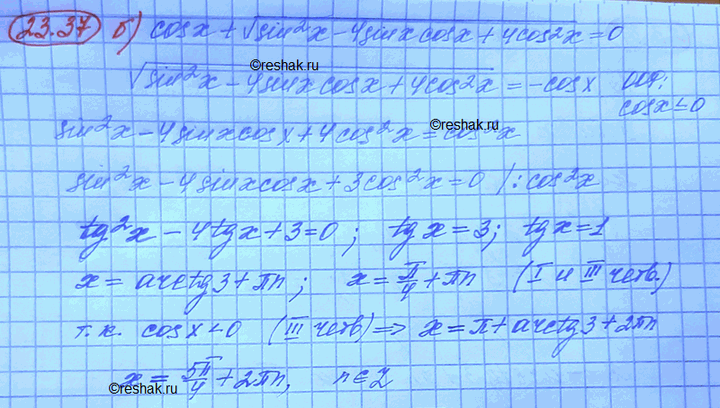 23.37 б) cosx + √sin²x - 4sinxcosx + 4cos²x = 0
©reshak.ru
√sin²x - 4sinxcosx + 4cos²x = -cosx ООР:
cosx≤0
sin²x - 4sinxcosx + 4cos²x = cos²x
©reshak.ru
sin²x - 4sinxcosx + 3cos²x = 0 /: cos²x
tg²x - 4tgx + 3 = 0 ; tgx = 3; tgx = 1
x = arctg3 + πn ; x = π/4 + πn (I и III четв.)
т.к. cosx<0 (III четв) => x = π + arctg3 + 2πn
x = 5π/4 + 2πn, n∈Z
©reshak.ru